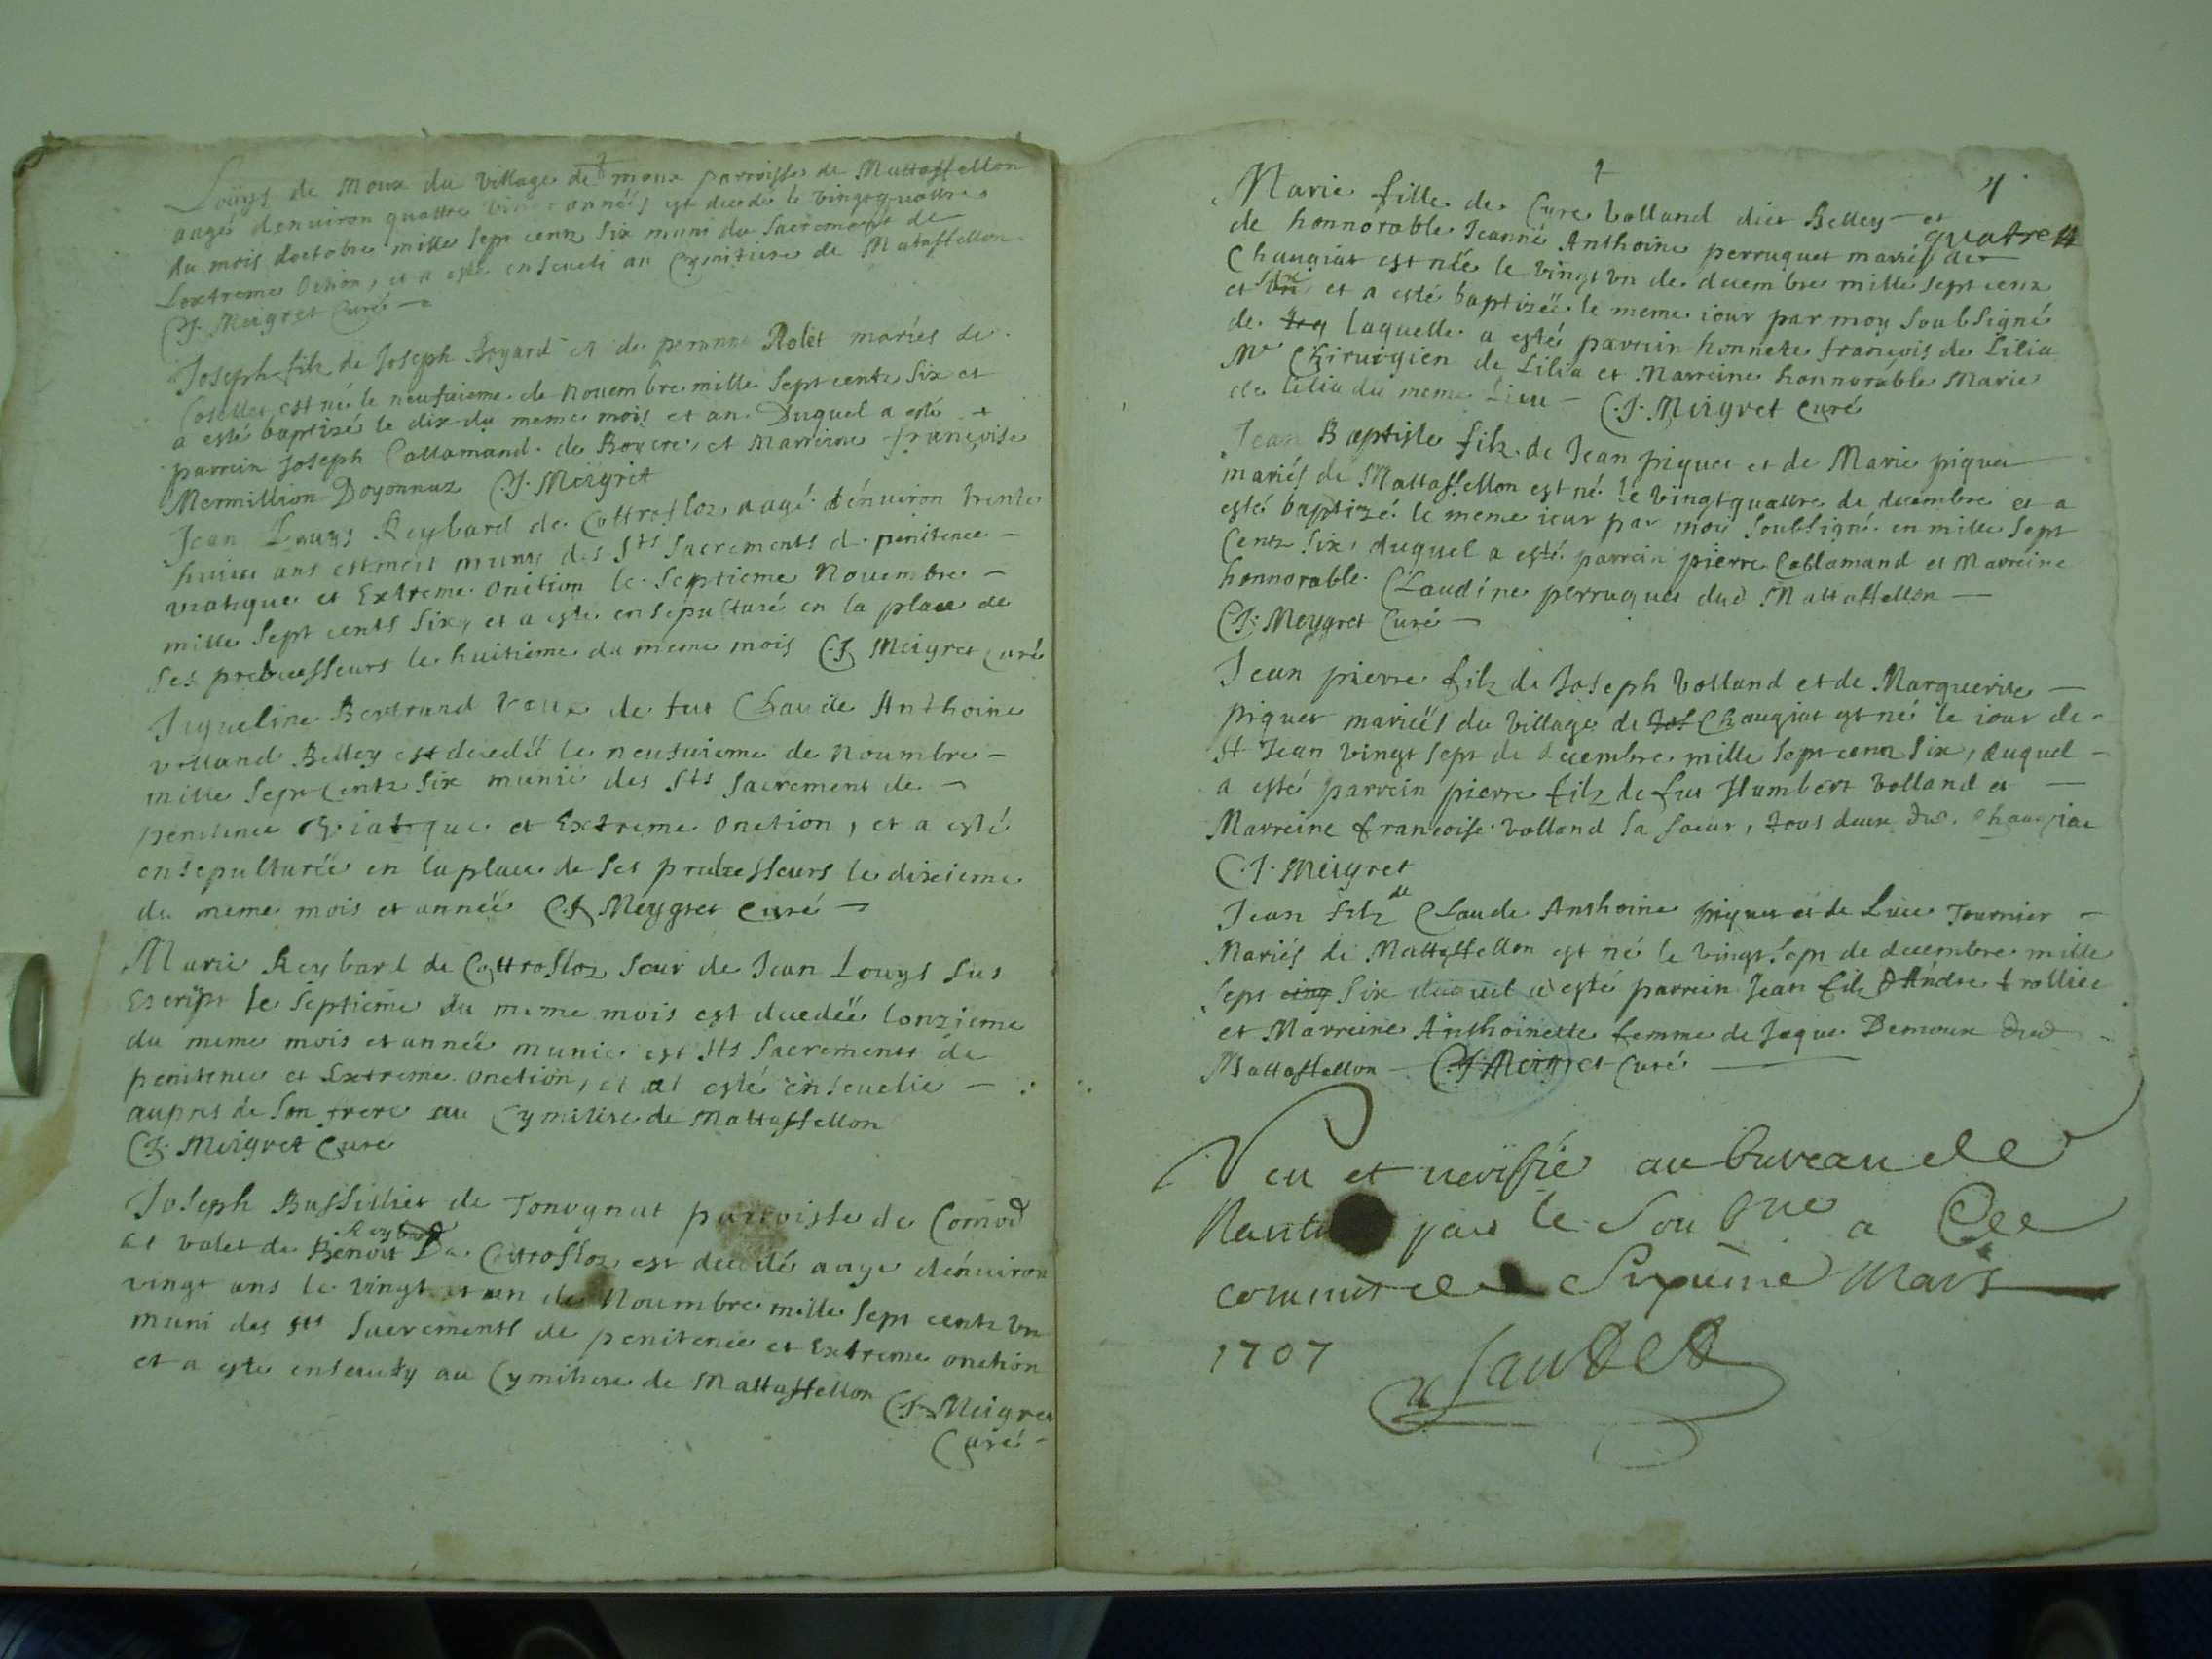 Loüys de Moux du village de moux parroisse de Mattaffellon
aagé denuiron quattre vingt années est decedé le vingtquattre
du mois doctobre mille sept centz six muni du sacrement de
Lextreme Oction, et a esté enseueli au Cymitiere de Mataffellon
C.J. Meigret Curé
Joseph filz de Joseph Goyard et de peronne Rolet mariés de
est né le neufuieme de Nouembre mille sept centz six et
a esté baptizé le dix du meme mois et an Duquel a esté
parrein Joseph Callamand de Boyere, et Marreine françoise
Mermillion Doyonnaz C.J. Meigret
Jean Louys Reybard de Cottrofloz aagé dénuiron trente
huict ans est mort muny des Sts Sacrements de penitence
viatique et Extreme Onction le Septieme Nouembre
mille Sept cents Six, et a esté ensepulturé en la place de
ses predecesseurs le huitieme du meme mois C.J. Meigret Curé
Jaqueline Bertrand veuue de fut Claude Anthoine
volland Belley est decedée le neufuieme de Nouembre
mille sept Centz six munie des Sts Sacrement de
penitence viatique et Extreme Onction, et a esté
ensepulturée en la place de ses predecesseurs le dixieme
du meme mois et année C.J. Meygret Curé
Marie Reybard de Cottrofloz Seur de Jean Louys sus
Escript le septieme du meme mois est decedée lonzieme
du meme mois et année munie est Sts Sacrements de
penitence et Extreme Onction, et at esté enseuelie
aupres de son frere au Cymitiere de Mattaffellon
C.J. Meigret Curé
Joseph Bussilliet de Tonognat parroisse de Comod
Reybard
et valet de Benoit De Cottrofloz est decedé aage dénuiron
vingt ans le vingt et un de Nouembre mille sept centz
muni des sts Sacrements de penitence et Extreme onction
et a esté enseuely au Cymitiere de Mattaffellon C.J. Meigret
Curé
4
Marie fille de Cure volland dict Belley et
quatre
de honnorable Jeanne Anthoine perruquet mariés de
Chaugiat est née le vingt vn de decembre mille sept cenz
six
et vn et a esté baptizée le meme iour par moy soubsigné
de laquelle a esté parrein honnete françois de Lilia
Me Chirurgien de Lilia et Marreine honnorable Marie
de Lilia du meme Lieu C.J. Meigret Curé
Jean Baptiste filz de Jean piquet et de Marie piquet
mariés de Mattaffellon est né le vingtquattre de decembre et a
esté baptizé le meme iour par moy soubsigné en mille sept
Centz six, duquel a esté parrein pierre Callamand et Marreine
honnorable Claudine perruquet dud Mattaffellon
C.J. Meygret Curé
Jean pierre filz de Joseph volland et de Marguerite
piquet mariés du village de Jos Chaugiat est né le iour de
St Jean vingt sept de decembre mille sept cenz six, duquel
a esté parrein pierre filz de fut Humbert volland et
Marreine francoise volland sa soeur, tous deux dud. Chaugiat
C.J. Meigret
de
Jean filz Claude Anthoine piquet et de Luce Tournier
Mariés de Mattaffellon est né le vingt sept de decembre mille
sept cinq six duquel a esté parrein Jean filz dAndre trolliet
et Marreine Anthoinette femme de Jaque Demoux dud
Mattaffellon C.J. Meigret Curé
Veu et verifié au bureau de
Nantua par le Sou a Ce
commis le mars
1707